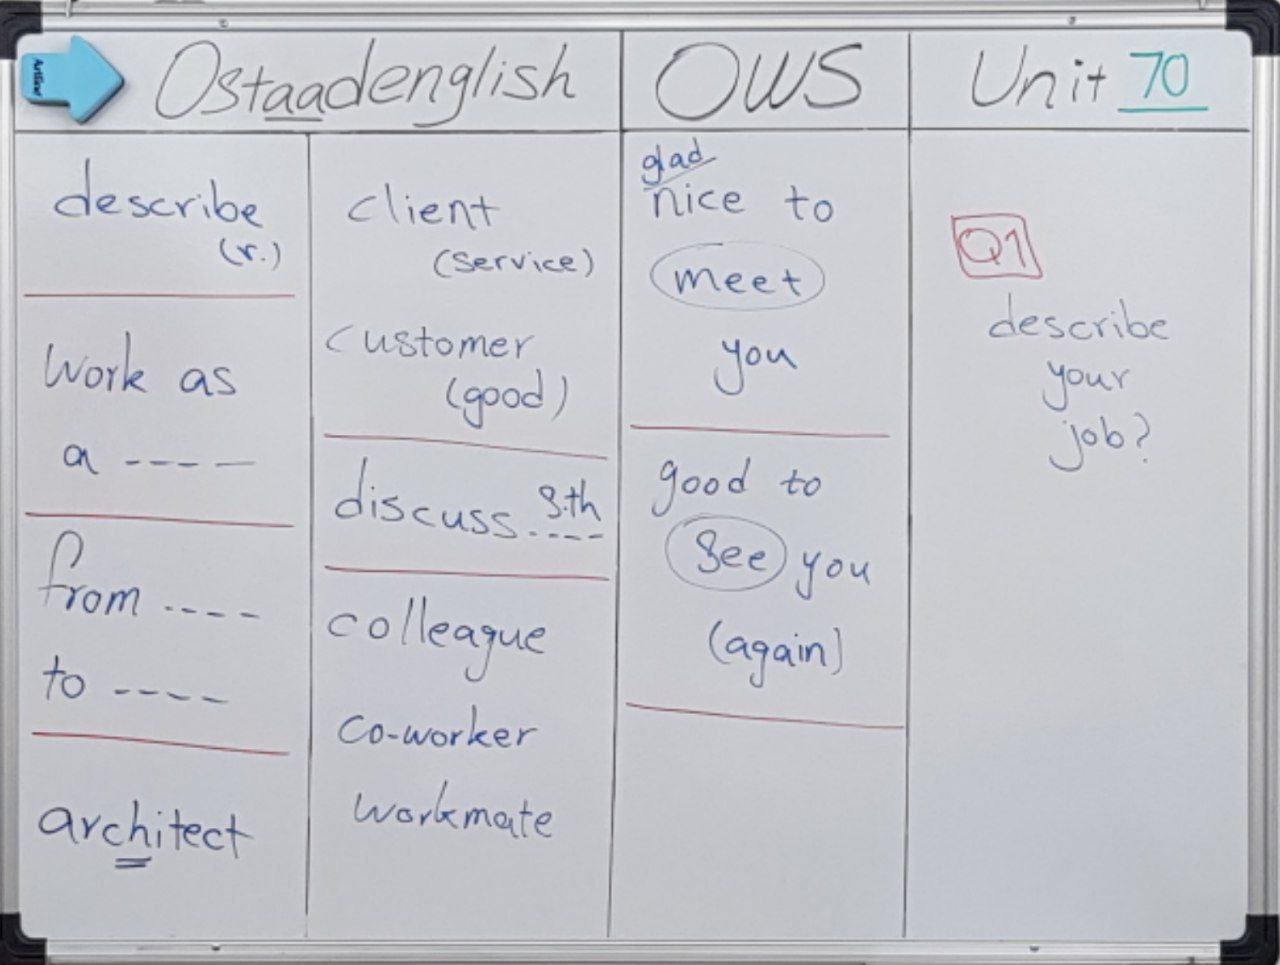 Artline
Ostaadenglish
OWS
Unit 70
describe
(r.)
work as
a ----
from ----
to ----
architect
client
(service)
customer
(good)
discuss s.th
----
colleague
co-worker
workmate
glad
nice to
meet
you
good to
see you
(again)
Q1
describe
your
job?